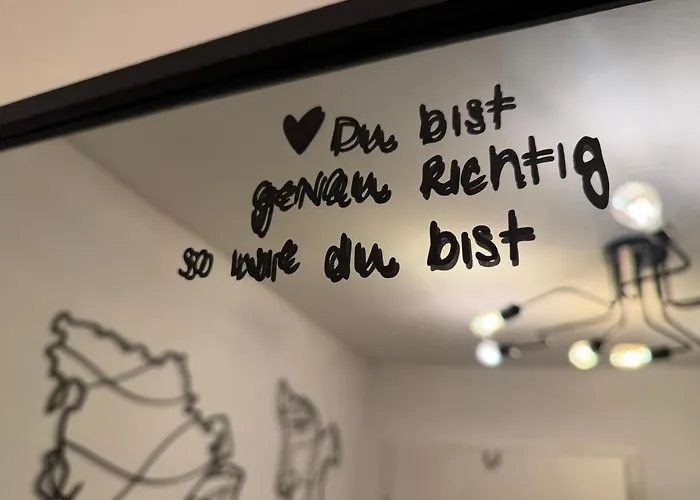 ♥ Du bist
genau Richtig
so wie du bist